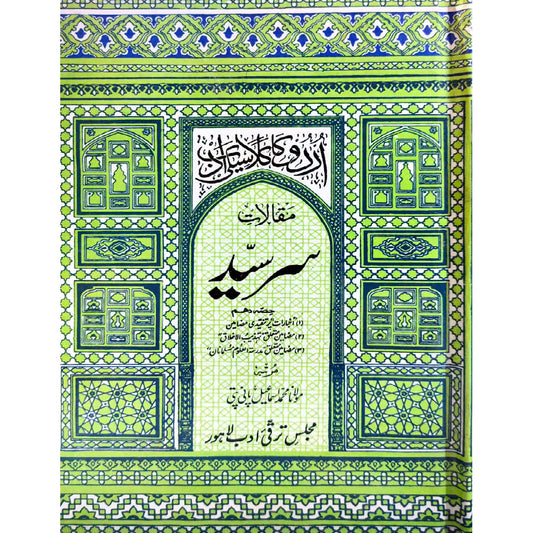 اردو کا کلاسیکی ادب
مقالات
سر سیّد
حصہ دہم
(۱) اخبارات پر تنقیدی مضامین
(۲) مضامین متعلق "تہذیب الاخلاق"
(۳) مضامین متعلق "مدرسۃ العلوم مسلمانان"
مرتبہ
مولانا محمد اسماعیل پانی پتی
مجلس ترقی ادب لاہور